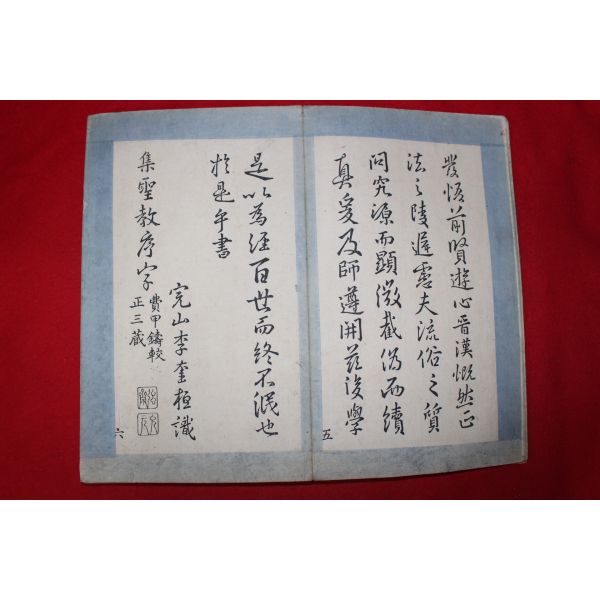 發悟前賢遊心晉漢慨然正
法之陵遲虛夫流俗之質
問究源而顯微截偽而續
真爰及師導開茲後學
五
是以為經百世而終不泯也
於是乎書
完山李奎桓識
集聖教序字
費甲鑄較
正三藏
六